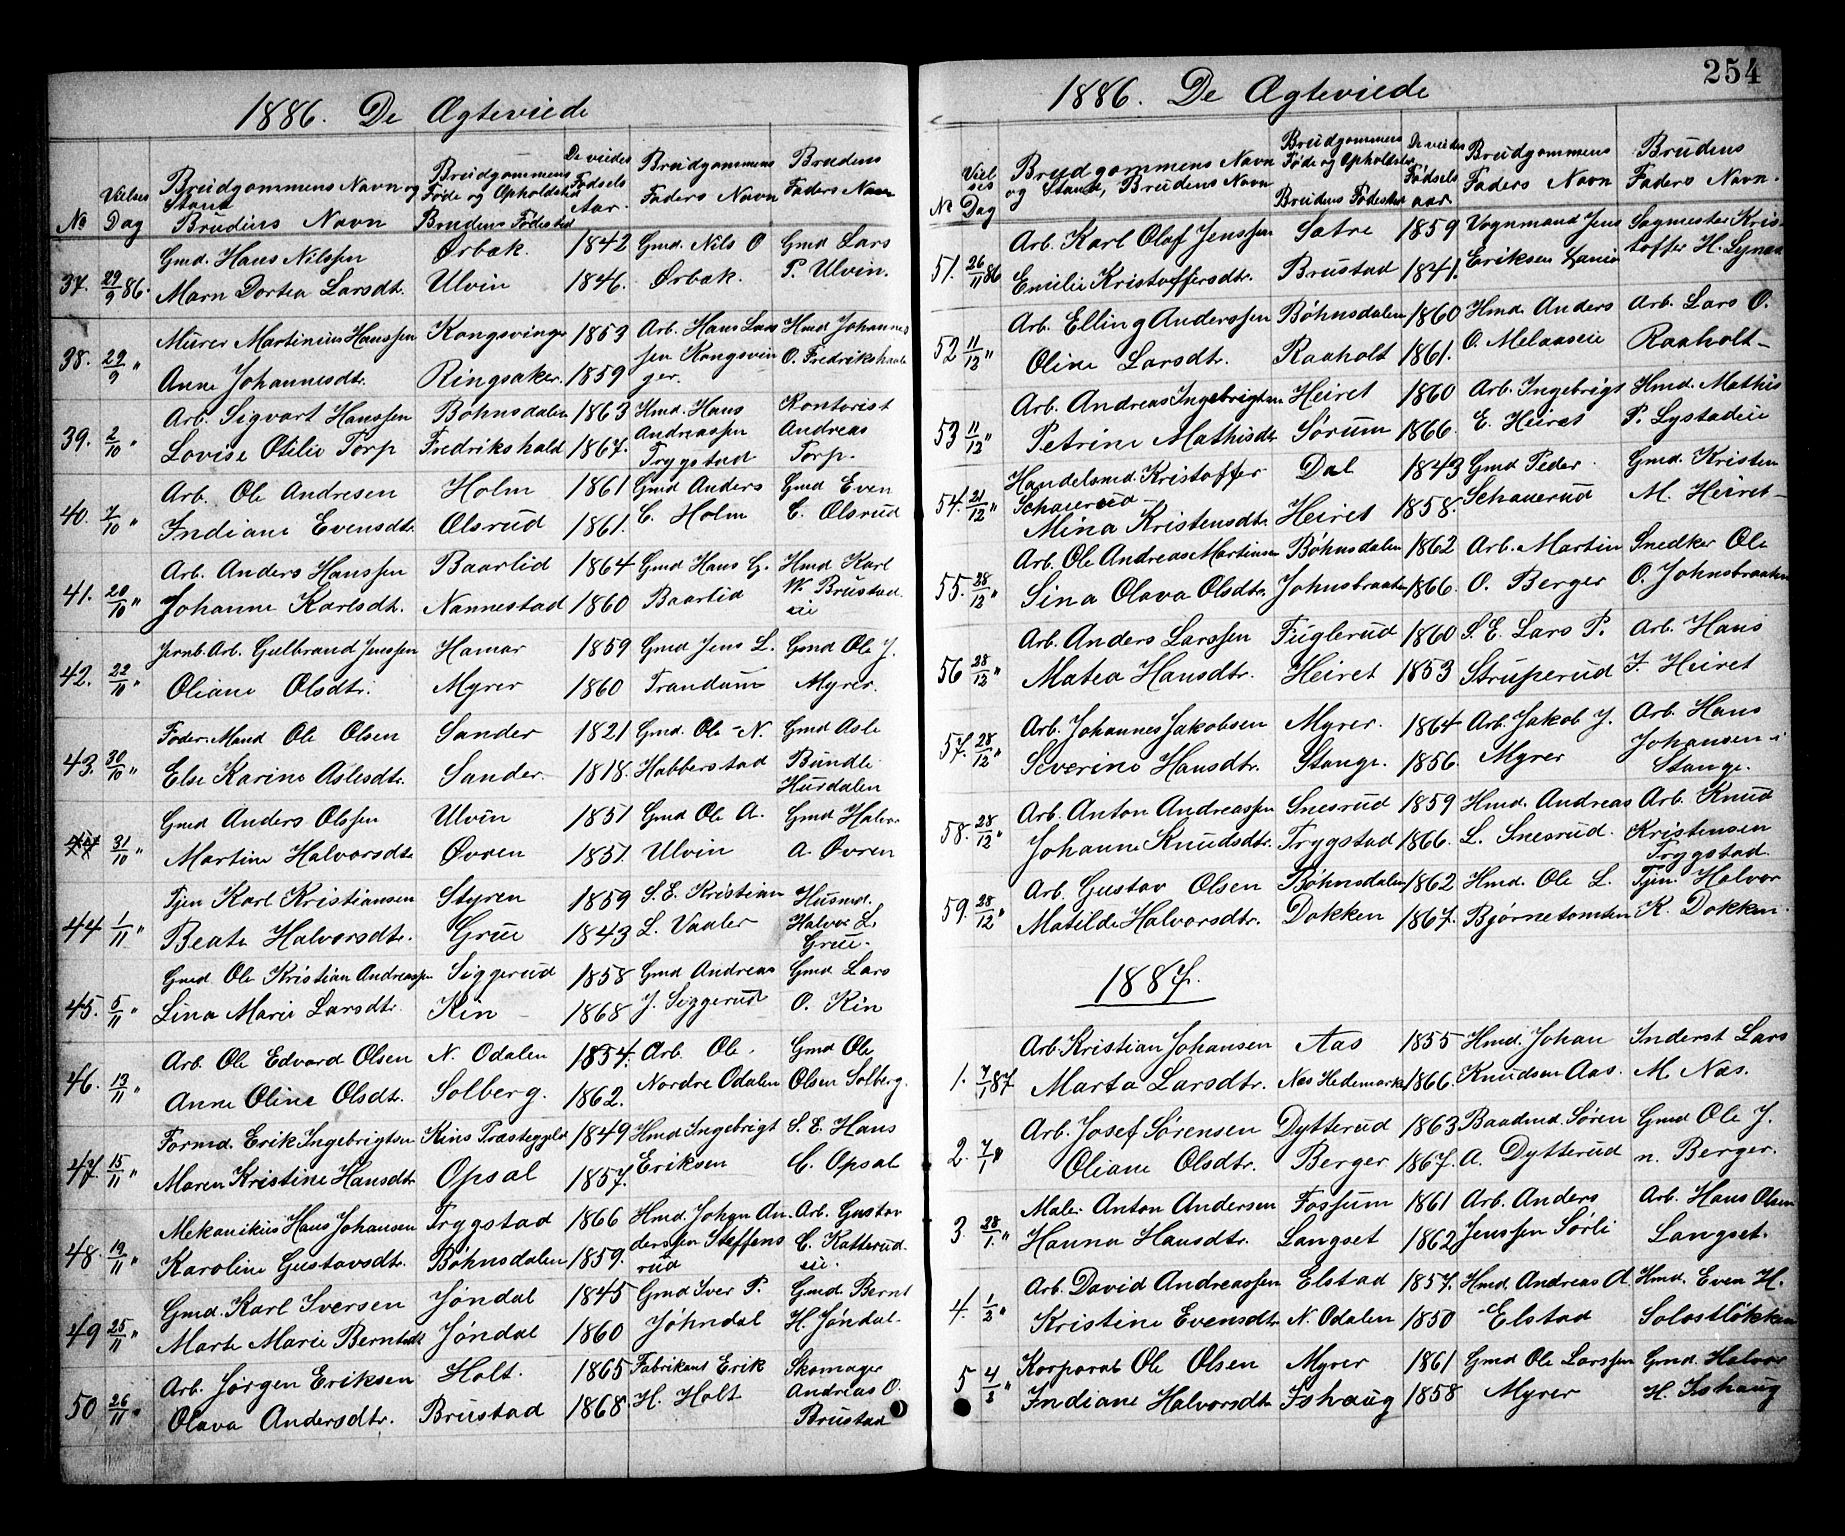 1886. De Ægteviede
No
Vielses Dag
Brudgommens Navn og Stand
Brudens Navn
Brudgommens Føde og Opholdsted
Brudens Fødested
De viedes Fødsels Aar.
Brudgommens Faders Navn
Brudens Faders Navn
37. 29/9 86. Gmd. Hans Nilssen Ørbak. 1842 Gmd. Nils O Gmd Lars
Marn Dortea Larsdt. Ulvin 1846. Ørbak. P. Ulvin.
38. 29/9 " Murer Martinius Hanssen Kongsvinge 1853 Arb. Hans Lars Hmd Johannes
Anne Johannesdt. Ringsaker. 1859 sen Kongsvin O. Fredrikshald
ger.
39. 2/10 " Arb. Sigvart Hanssen Bøhnsdalen 1863 Hmd. Hans Kontorist
Lovise Otilie Torp Fredrikshald 1867. Andreassen Andreas
Trygstad Torp.
40. 7/10 " Arb. Ole Andresen Holm 1861 Gmd Anders Gmd Even
Indiane Evensdt. Olsrud 1861. C. Holm C. Olsrud
41. 20/10 " Arb. Anders Hanssen Baarlid 1864 Gmd Hans G. Hmd Karl
Johanne Karlsdt. Nannestad 1860 Baarlid W. Brustad
eie
42. 22/10 " Jernb. Arb. Gulbrand Jenssen Hamar 1859 Gmd Jens L. Gmd Ole J.
Oliane Olsdt. Myrer 1860 Trandum Myrer.
43. 30/10 " Føder. Mand Ole Olsen Sander 1821 Gmd. Ole N. Gmd Asle
Else Karine Aslesdt. Sander. 1818. Habberstad Bundli
Hurdalen
31/10 " Gmd Anders Olssen Ulvin 1851 Gmd Ole A. Gmd Halvor
Martine Halvorsdt. Øvren 1851. Ulvin A. Øvren
44 1/11 " Tjen Karl Kristiansen Styren 1859 S.E. Kristian Husmd.
Beate Halvorsdt. Grue 1843 L. Vaaler Halvor L.
Grue.
45. 5/11 " Gmd Ole Kristian Andreassen Siggerud 1858 Gmd Andreas Gmd Lars
Lina Marie Larsdt. Kin 1868 J. Siggerud O. Kin
46. 13/11 " Arb. Ole Edvard Olsen N. Odalen 1854. Arb. Ole Gmd Ole
Anne Oline Olsdt. Solberg. 1862. Nordre Odalen Olsen Solberg.
47. 15/11 " Formd. Erik Ingebrigtsen Kins Træsteggeld 1849 Hmd Ingebrigt S. E. Hans
Maren Kristine Hansdt. Opsal 1857. Eriksen C. Opsal
48. 19/11 " Mekanikus Hans Johansen Trygstad 1866 Hmd. Johan An- Arb. Gustav
Karoline Gustavsdt. Bøhnsdalen 1859. derssen Steffens C. Katterud
rud eie.
49 25/11 " Gmd. Karl Iversen Jøndal 1845 Gmd Iver P. Gmd Bernt
Marte Marie Berntsdt Jøndal 1860 Jøhndal H. Jøndal
50 26/11 " Arb. Jørgen Eriksen Holt. 1865 Fabrikant Erik Skomager
Olava Andersdtr. Brustad 1868 H. Holt Andreas O.
Brustad
254
1886. De Ægteviede
No
Vielses Dag
Brudgommens Navn
og Stand, Brudens Navn
Brudgommens Føde og Opholdsted
Brudens Fødested
De viedes Fødsels aar
Brudgommens Faders Navn
Brudens Faders Navn.
51. 26/11 86 Arb. Karl Olaf Jenssen Sætre 1859 Vognmand Jens Sagmester Kris-
Emilie Kristoffersdtr. Brustad 1841. Eriksen toffer H.
52 11/12 " Arb. Elling Anderssen Bøhnsdalen 1860 Hmd. Anders Arb. Lars O.
Oline Larsdt. Raaholt 1861. O. Melaaseie Raaholt
53 11/12 " Arb. Andreas Ingebrigtsen Heiret 1860 Arb. Ingebrigt Hmd. Mathis
Petrine Mathisdr Sørum 1866. E. Heiret P. Lystadeie
54. 21/12 " Handelsmd. Kristoffer Dal 1843 Gmd Peder Gmd. Kristen
Schauerud
Mina Kristensdtr. Heiret 1858. Schauerud M. Heiret
55. 28/12 " Arb. Ole Andreas Martinsen Bøhnsdalen 1862 Arb. Martin Snedker Ole
Sina Olava Olsdtr. Johnsbraaten 1866. O. Berger O. Johnsbraaten
56 28/12 " Arb. Anders Larssen Fuglerud 1860 S. E. Lars P. Arb. Hans
Matea Hansdtr. Heiret 1853 Struperud F. Heiret
57. 28/12 " Arb. Johannes Jakobsen Myrer. 1864 Arb. Jakob J. Arb. Hans
Severine Hansdtr. Stange. 1856. Myrer Johansen i
Stange.
58. 28/12 " Arb. Anton Andreassen Snesrud 1859 Hmd. Andreas Arb. Knud
Johanne Knudsdtr. Trygstad 1866. L. Snesrud. Kristensen
Trygstad.
59. 28/12 " Arb. Gustav Olsen Bøhnsdalen 1862 Hmd. Ole L. Tjen. Halvor
Matilde Halvorsdtr. Dokken 1867. Bjørnetomten K. Dokken.
1887.
1. 7/1 87 Arb. Kristian Johansen Aas 1855 Hmd. Johan Inderst Lars
Marta Larsdtr. Næs Hedemarken 1866. Knudsen Aas. M Næs.
2. 7/1 " Arb. Josef Sørensen Dytterud 1863 Baadmd. Søren Gmd Ole J.
Oliane Olsdtr. Berger 1867. A. Dytterud n. Berger.
3. 28/1. " Maler Anton Andersen Fossum 1861 Arb. Anders Arb. Hans Olsen
Hanna Hansdtr. Langset 1862 Jenssen Sørli Langset.
4. 1/2 " Arb. David Andreassen Elstad 1857. Hmd Andreas A. Hmd. Even H.
Kristine Evensdtr N. Odalen 1850 Elstad Solostløkken
5 4/3 " Korporal Ole Olsen Myrer 1861 Gmd Ole Larssen Gmd. Halvor
Indiane Halvorsdtr Ishaug 1858 Myrer H. Ishaug